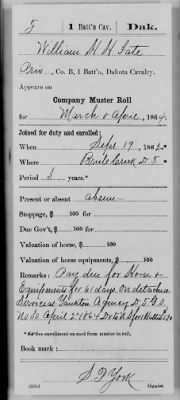 F | 1 Batt'n Cav. | Dak.
William H H Fate
Priv., Co. B, 1 Batt'n, Dakota Cavalry.
Appears on
Company Muster Roll
for March & April, 1864.
Joined for duty and enrolled:
When Sept 19, 1862.
Where D T
Period 3 years.*
Present or absent Absent
Stoppage, $ 100 for
Due Gov't, $ 100 for
Valuation of horse, $ 100
Valuation of horse equipments, $ 100
Remarks: Pay due for Horse &
Equipments for 61 days On detached
Service at Yankton Agency D.T. G.O.
No 20 April 2" 1864
*See enrollment on card from muster-in roll.
Book mark:
S T York
Copyist.